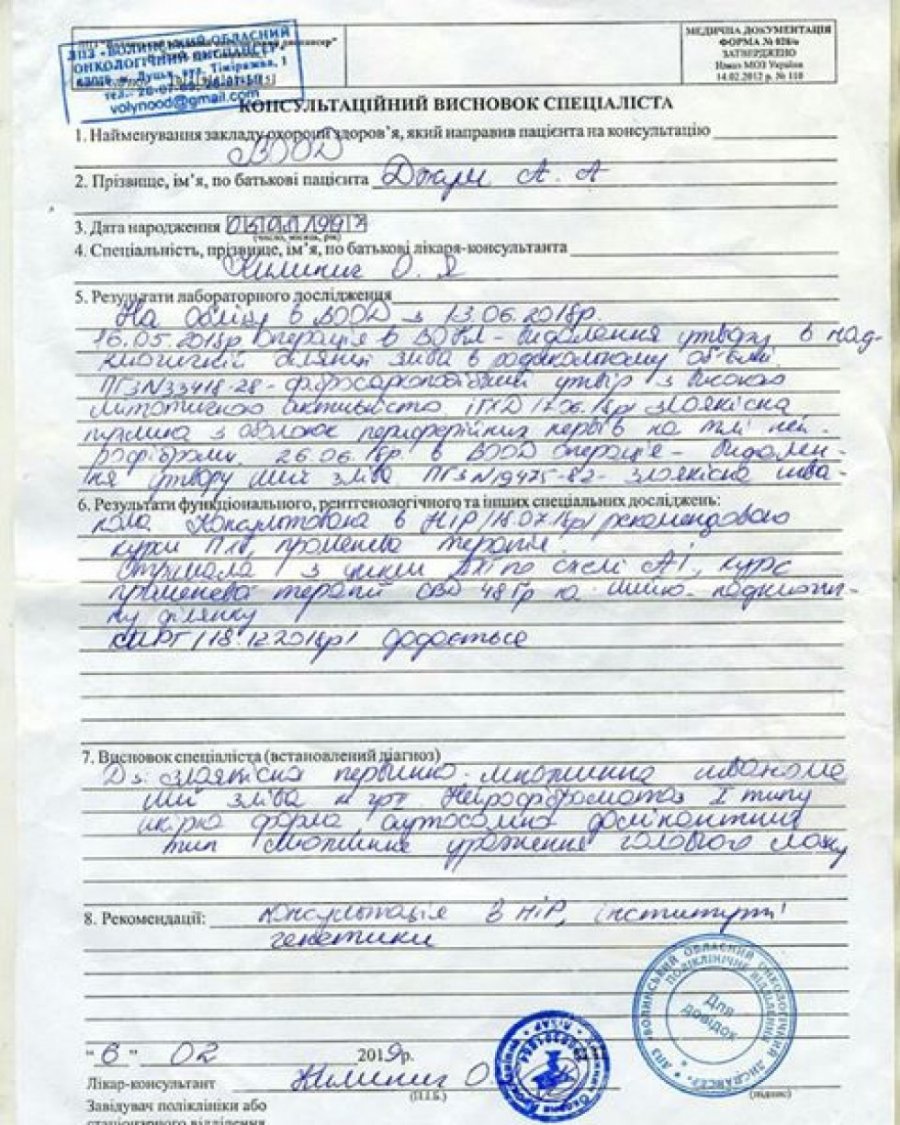 ЛПЗ "ВОЛИНСЬКИЙ ОБЛАСНИЙ
ОНКОЛОГІЧНИЙ ДИСПАНСЕР"
Тімірязєва, 1
volynood@gmail.com
МЕДИЧНА ДОКУМЕНТАЦІЯ
ФОРМА № 028/о
ЗАТВЕРДЖЕНО
Наказ МОЗ України
14.02.2012 р. № 110
КОНСУЛЬТАЦІЙНИЙ ВИСНОВОК СПЕЦІАЛІСТА
1. Найменування закладу охорони здоров'я, який направив пацієнта на консультацію
ВООД
2. Прізвище, ім'я, по батькові пацієнта А. А
3. Дата народження
(число, місяць, рік)
4. Спеціальність, прізвище, ім'я, по батькові лікаря-консультанта
О. Я
5. Результати лабораторного дослідження
На обліку в ВООД з 13.06.2018р.
16.05.2018р Операція в ВОКЛ - видалення утвору в над-
ключичній ділянці зліва в радикальному об'ємі
ПГЗ N33418-28 - утвір з високою
мітотичною активністю ІГХД злоякісна
пухлина з оболонк периферійних нервів на тлі ней-
рофіброми. 26.06.18р. в ВООД операція - видален-
ня утвору шиї зліва ПГЗ N19475-82 - злоякісна шва-
6. Результати функціонального, рентгенологічного та інших спеціальних досліджень:
нома Консультована в НІР /18.07.18р/ рекомендовано
курси ПХТ, променева терапія.
Отримала 3 цикли ПХТ по схемі АІ, курс
променевої терапії СВД 48 Гр на шийно-надключич-
ну ділянку
/18.12.2018р/ додається
7. Висновок спеціаліста (встановлений діагноз)
Dз: злоякісна первинно-множинна шванома
шиї зліва ІІ гр. Нейрофіброматоз І типу
шкірна форма, аутосомно домінантний
тип множинне ураження головного мозку
8. Рекомендації: консультація в НІР, інституті
генетики
"6" 02 2019р.
Лікар-консультант О.
(П.І.Б.)
(підпис)
Завідувач поліклініки або
стаціонарного відділення
ВОЛИНСЬКИЙ ОБЛАСНИЙ ОНКОЛОГІЧНИЙ ДИСПАНСЕР
ПОЛІКЛІНІЧНЕ ВІДДІЛЕННЯ
Для
довідок